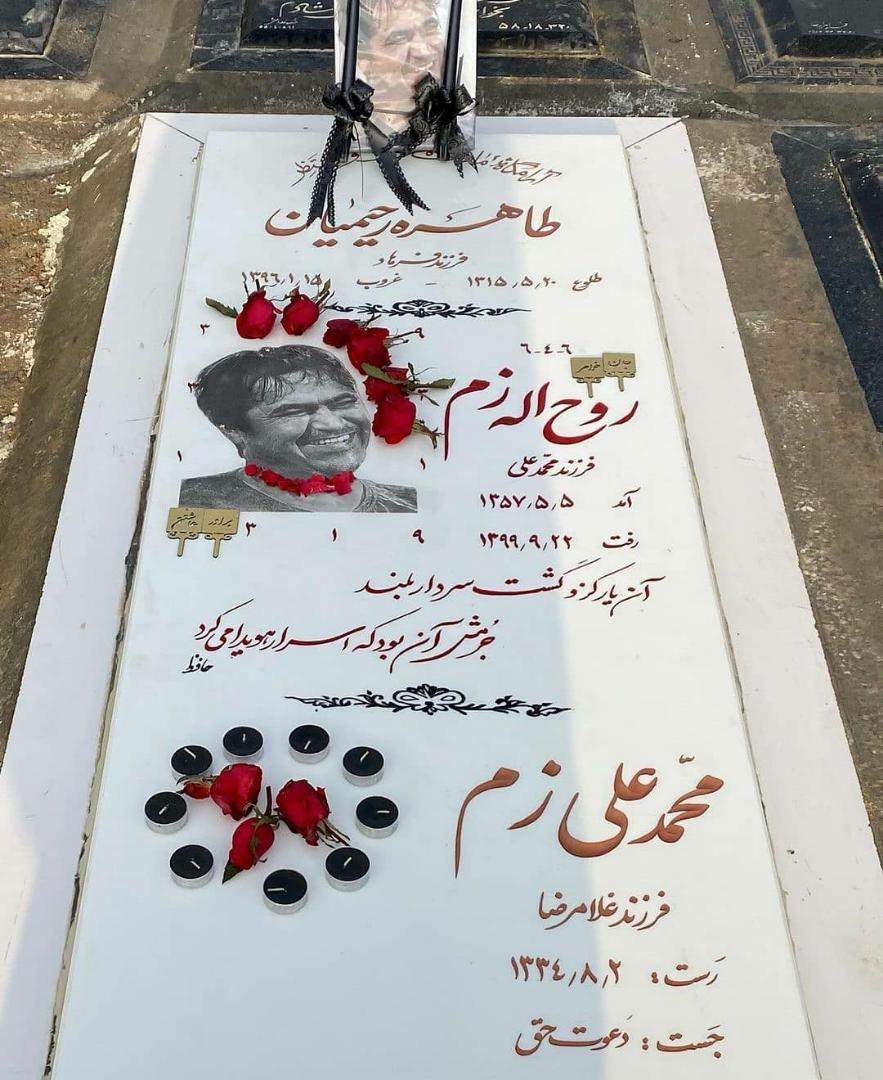 ۵۸.۱۸.۳۲۰
آرامگاه
طاهره رحیمیان
فرزند فرهاد
طلوع ۱۳۱۵٫۵٫۲۰ - غروب ۱۳۹۶٫۱٫۱۵
۳ ۹
۶-۴-۶
جان خواهر
روح اله زم
فرزند محمدعلی
۱ ۱
آمد ۱۳۵۷٫۵٫۵
رفت ۱۳۹۹٫۹٫۲۲
برادر
۳ ۱ ۹
آن یار کزو گشت سردار بلند
جُرمش آن بود که اسرار هویدا می کرد
حافظ
محمّد علی زم
فرزند غلامرضا
رَست: ۱۳۳۴٫۸٫۲
جَست: دَعوت حق